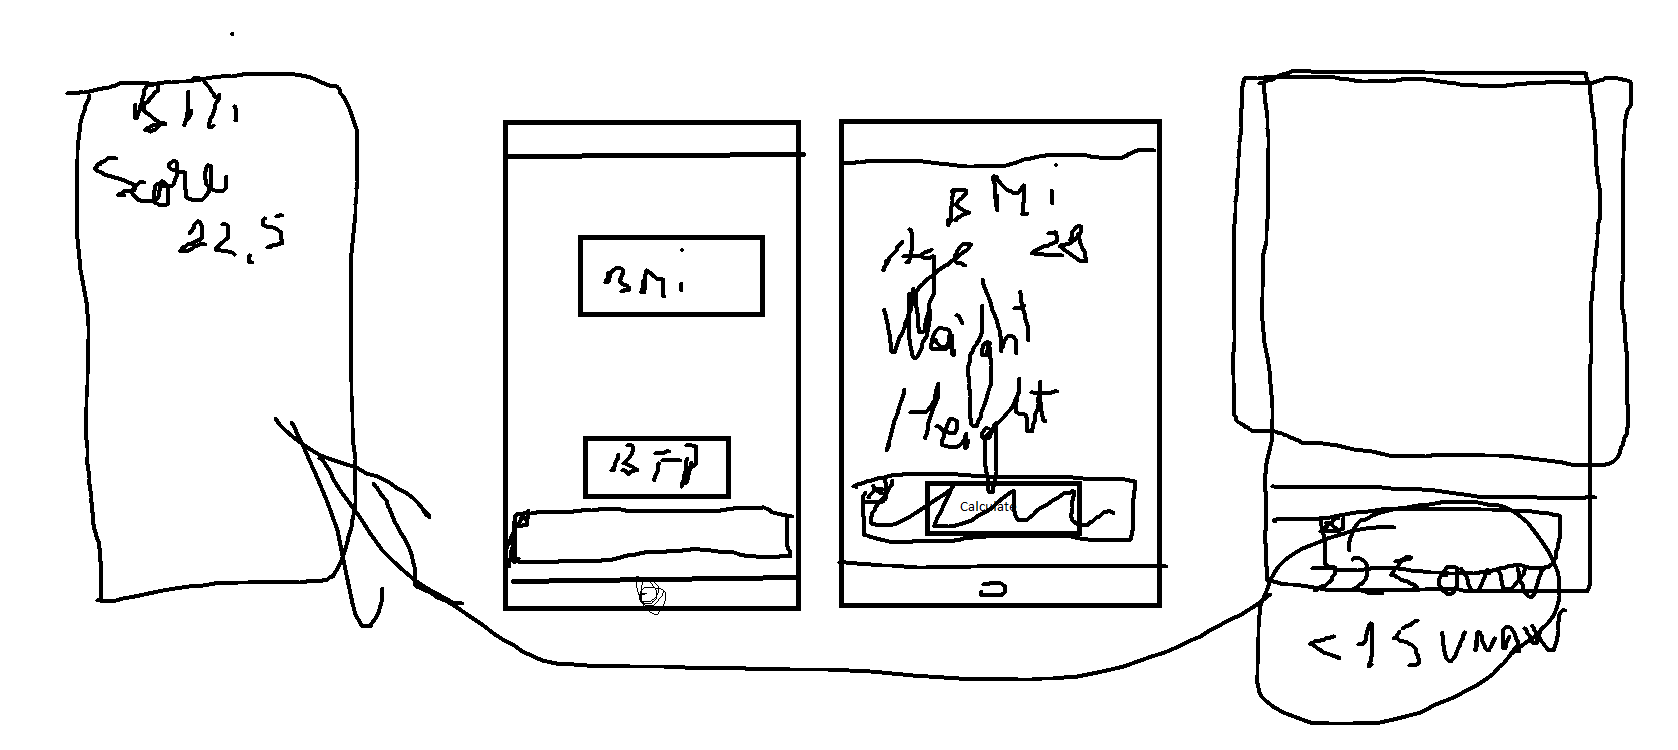 BMi
Score
22.5
BMi
BFP
BMi
Age 28
Waight
Height
Calculate
<15